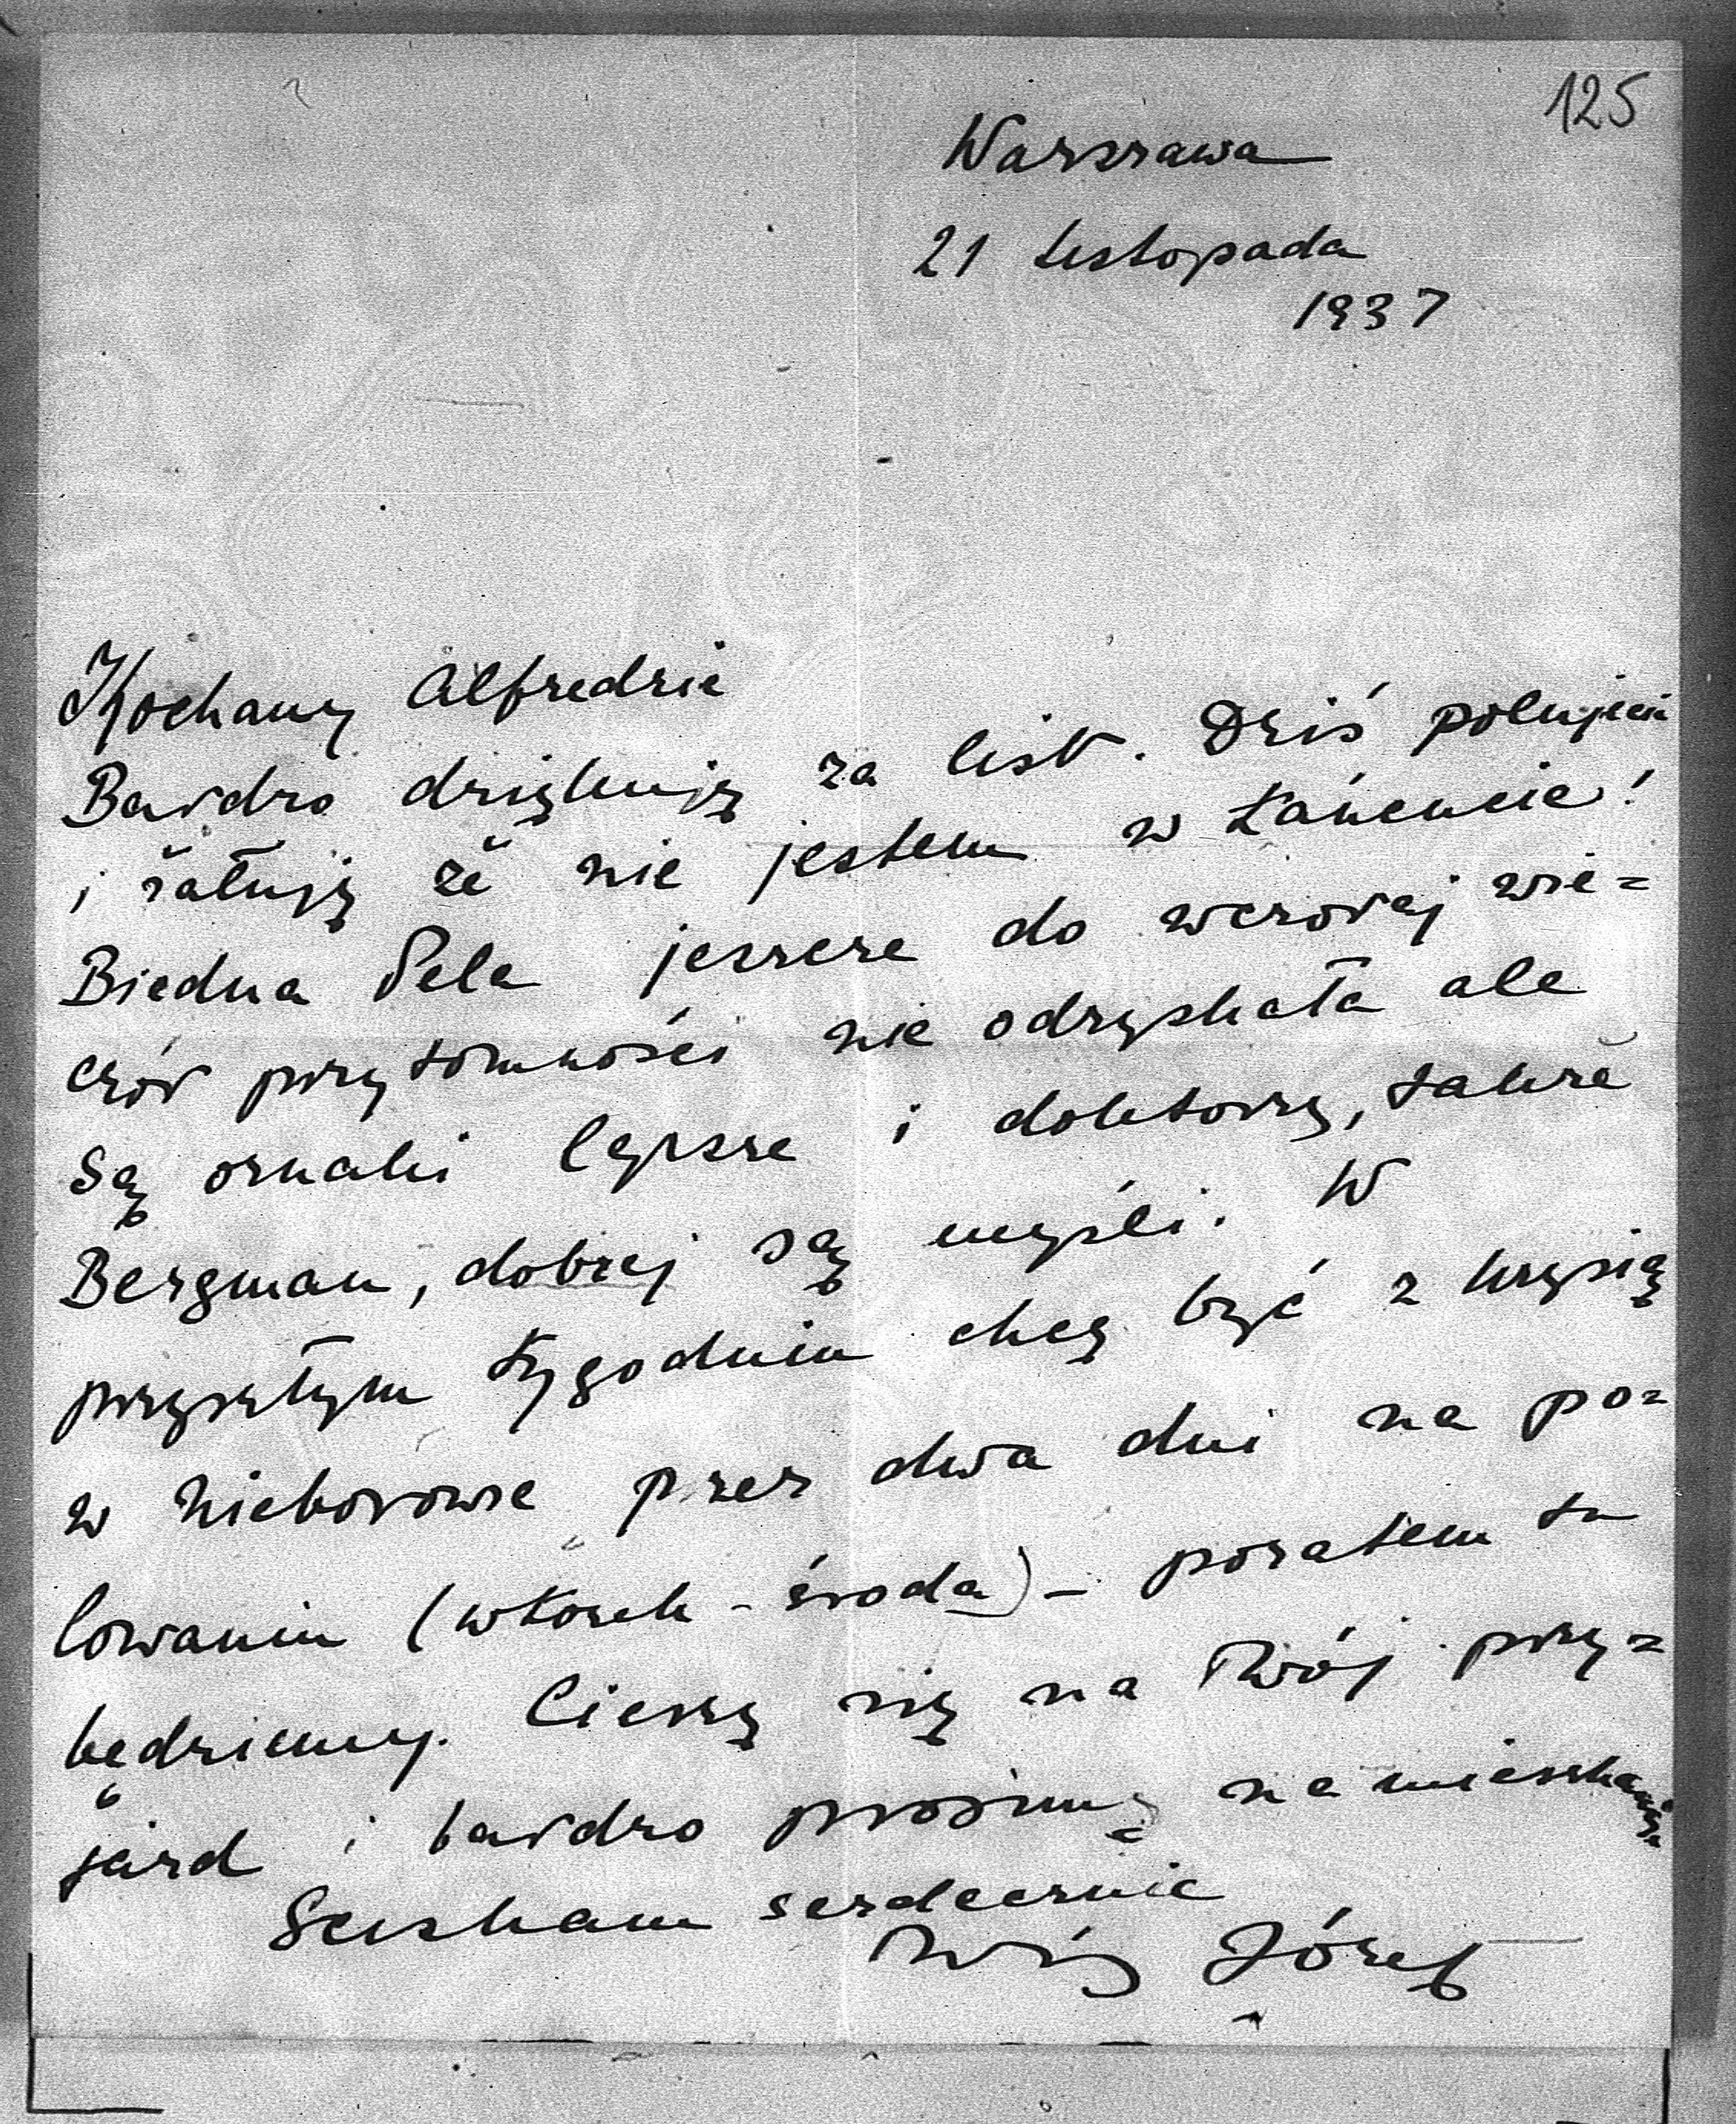 125
Warszawa
21 listopada
1937
Kochany Alfredzie
Bardzo dziękuję za list. Dziś polujecie
i żałuję że nie jestem w Łańcucie!
Biedna Pela jeszcze do wczoraj wie=
czór przytomności nie odzyskała ale
są oznaki lepsze i doktorzy, także
Bergman, dobrej są myśli. W
przyszłym tygodniu chcę być z Krysią
w Nieborowie przez dwa dni na po=
lowaniu (wtorek - środa) - pozatem tu
będziemy. Cieszę się na Twój przy=
jazd i bardzo prosimy na mieszkanie
Ściskam serdecznie
Twój Józef